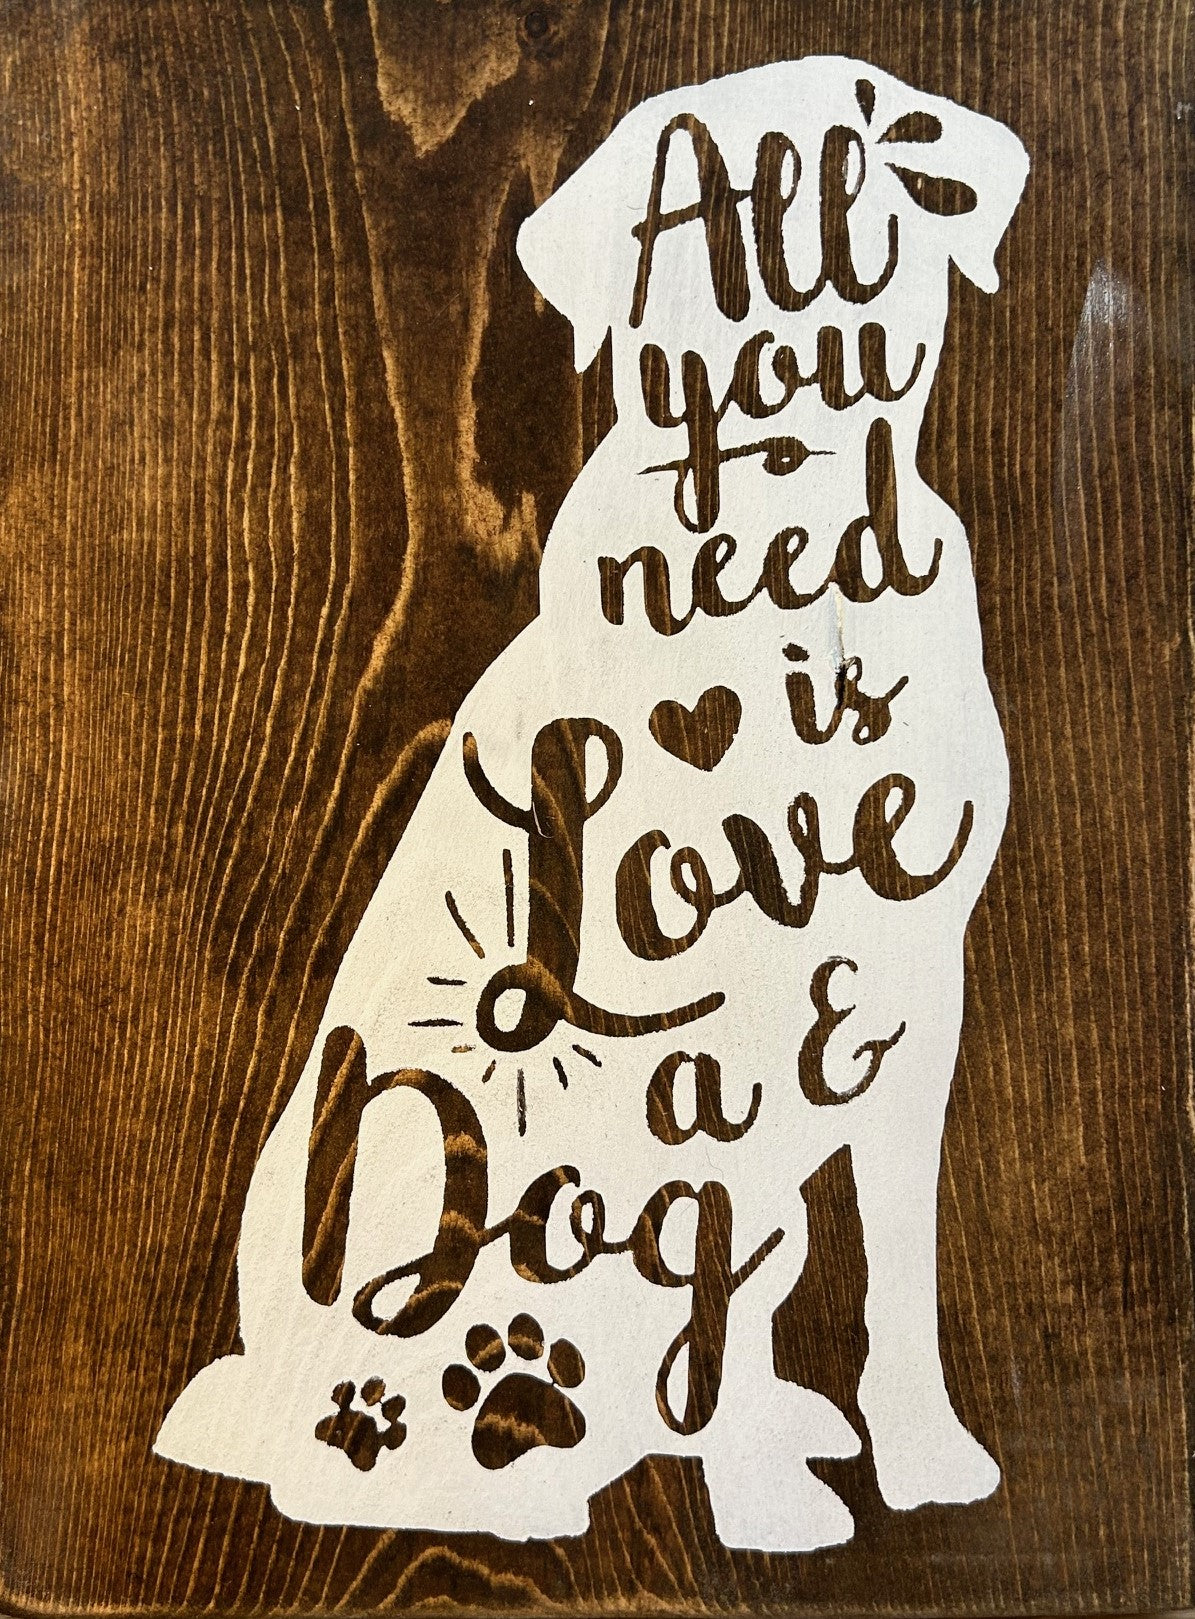 All
you
need
is
Love
& a
Dog